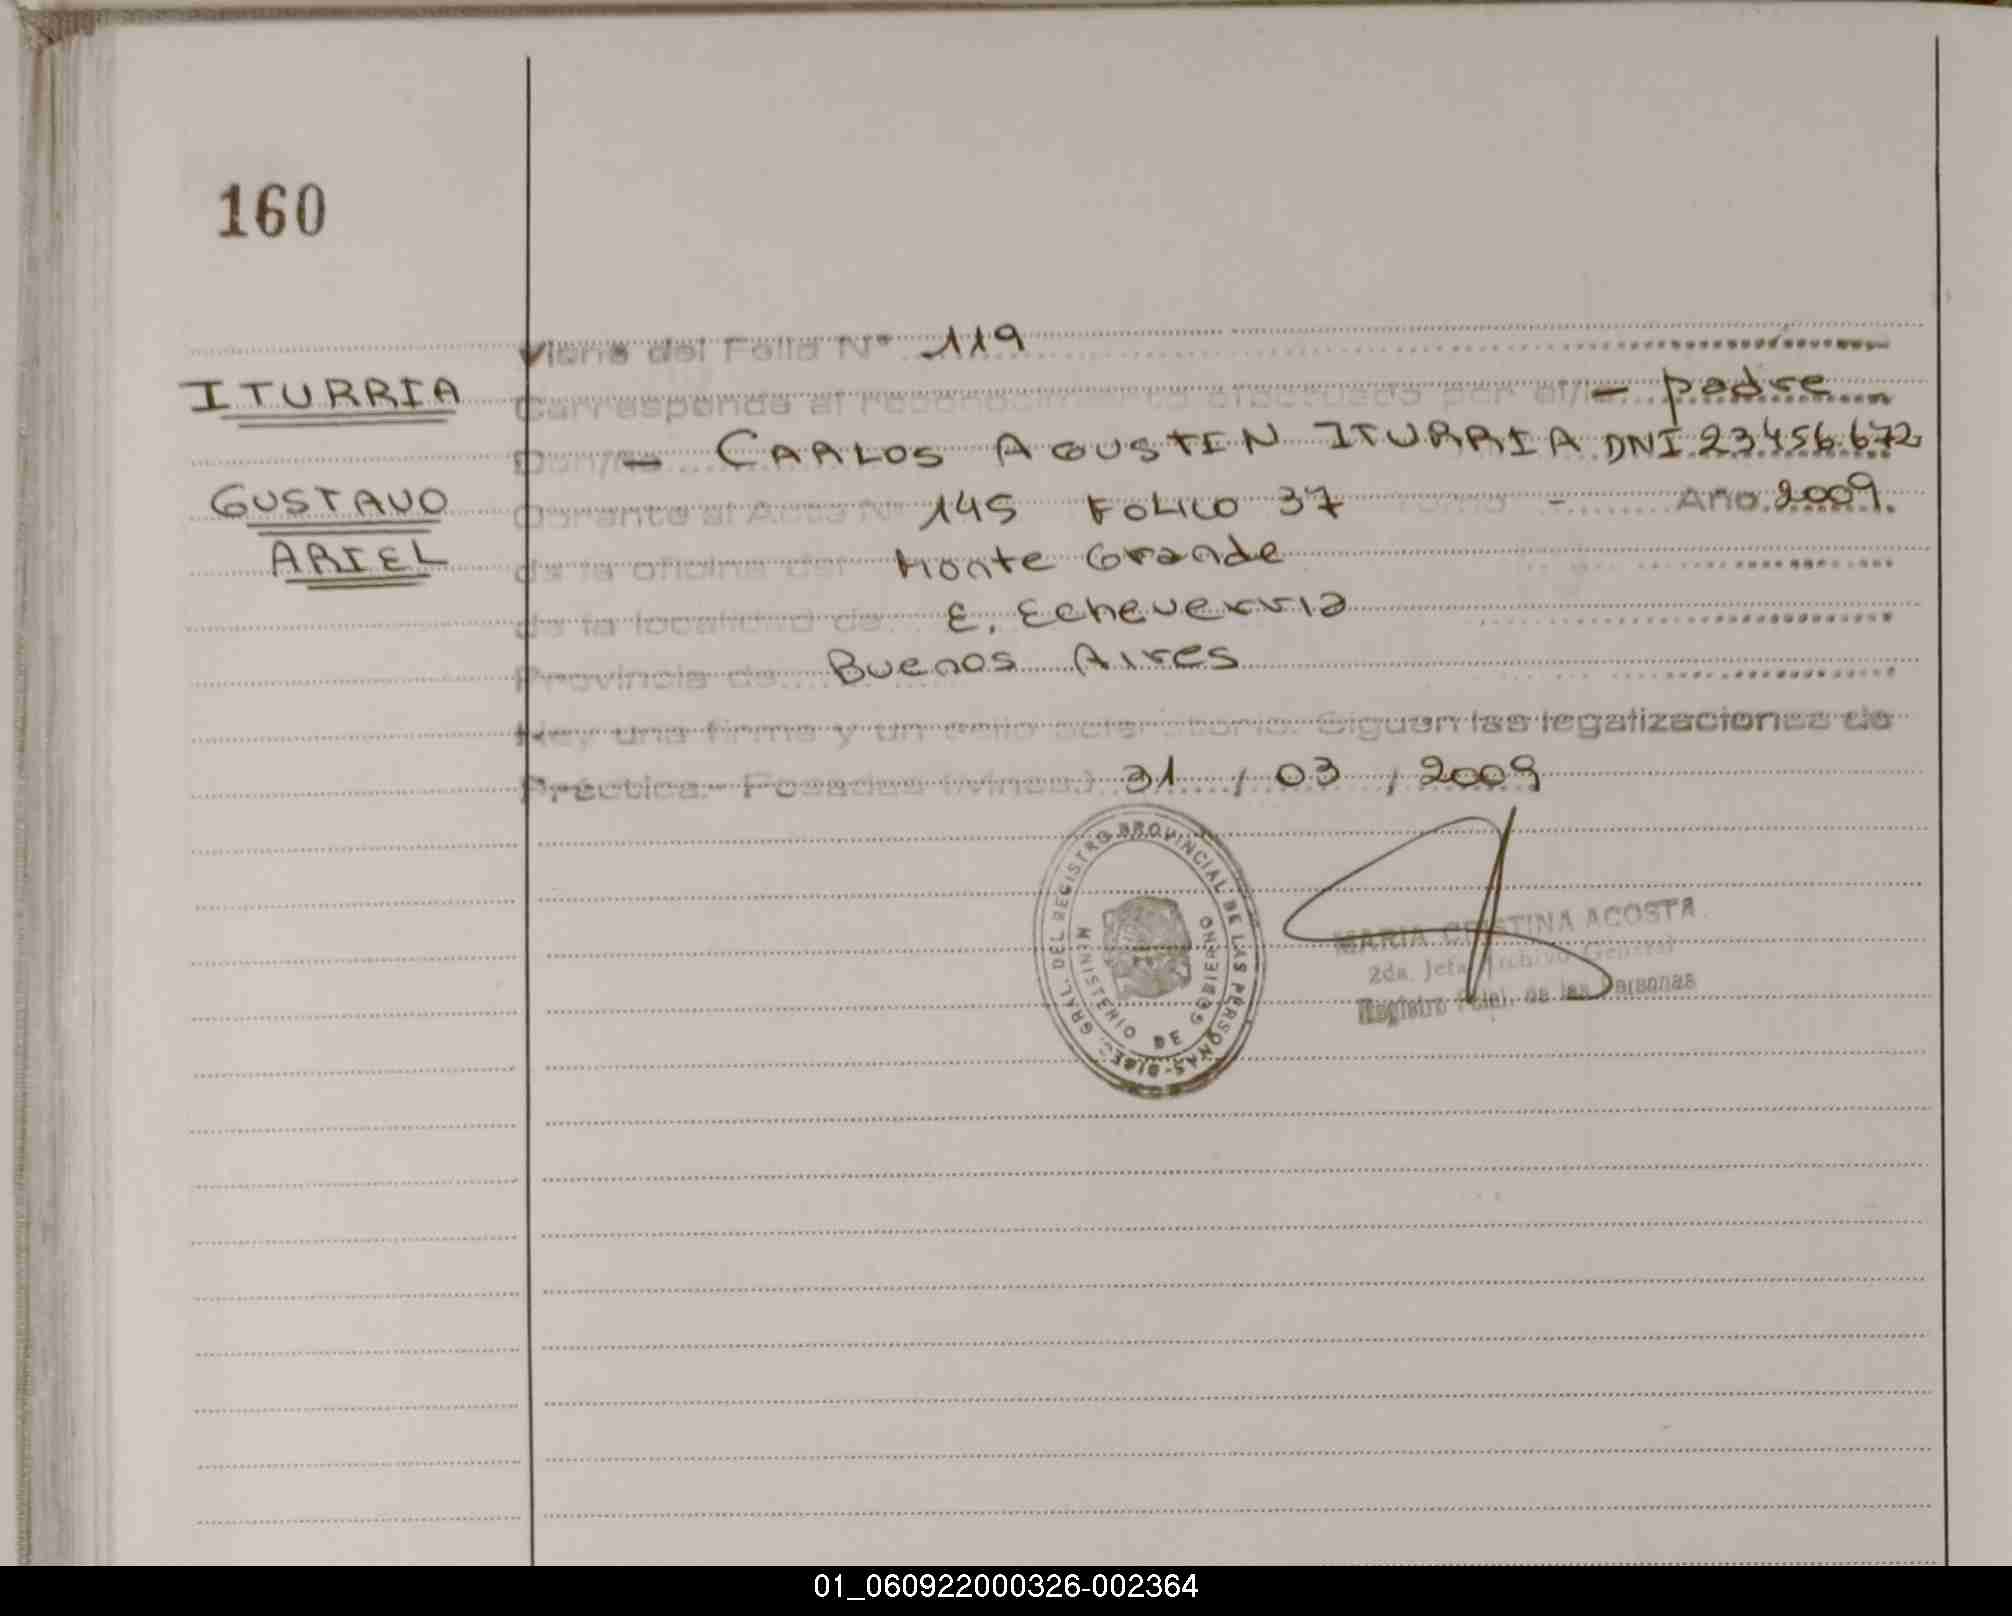 160
Viene del Folio N° 119
ITURRIA
Corresponde al reconocimiento efectuado por el/la - padre
Don/ña - CARLOS AGUSTIN ITURRIA DNI 23456.672
GUSTAVO
Obrante al Acta N° 145 FOLIO 37 Tomo - Año 2009.
ARIEL
de la oficina del Monte Grande
de la localidad de E. Echeverria
Provincia de Buenos Aires
Hay una firma y un sello aclaratorio. Siguen las legalizaciones de
Práctica.- Posadas (Mnes.) 31 / 03 / 2009
DIREC. GRAL. DEL REGISTRO PROVINCIAL DE LAS PERSONAS
MINISTERIO DE GOBIERNO
MARIA CRISTINA ACOSTA
2da. Jefa Archivo General
Registro Pcial. de las Personas
01_060922000326-002364